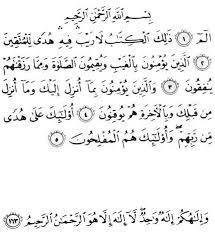 بِسْمِ اللَّهِ الرَّحْمَنِ الرَّحِيمِ
الٓمٓ ﴿١﴾ ذَٰلِكَ الْكِتَابُ لَا رَيْبَ فِيهِ هُدًى لِّلْمُتَّقِينَ
﴿٢﴾ الَّذِينَ يُؤْمِنُونَ بِالْغَيْبِ وَيُقِيمُونَ الصَّلَوٰةَ وَمِمَّا رَزَقْنَٰهُمْ
يُنفِقُونَ ﴿٣﴾ وَالَّذِينَ يُؤْمِنُونَ بِمَا أُنزِلَ إِلَيْكَ وَمَا أُنزِلَ
مِن قَبْلِكَ وَبِالْآخِرَةِ هُمْ يُوقِنُونَ ﴿٤﴾ أُولَٰئِكَ عَلَىٰ هُدًى
مِّن رَّبِّهِمْ وَأُولَٰئِكَ هُمُ الْمُفْلِحُونَ ﴿٥﴾
وَإِلَٰهُكُمْ إِلَٰهٌ وَٰحِدٌ لَّا إِلَٰهَ إِلَّا هُوَ الرَّحْمَٰنُ الرَّحِيمُ ﴿١٦٣﴾